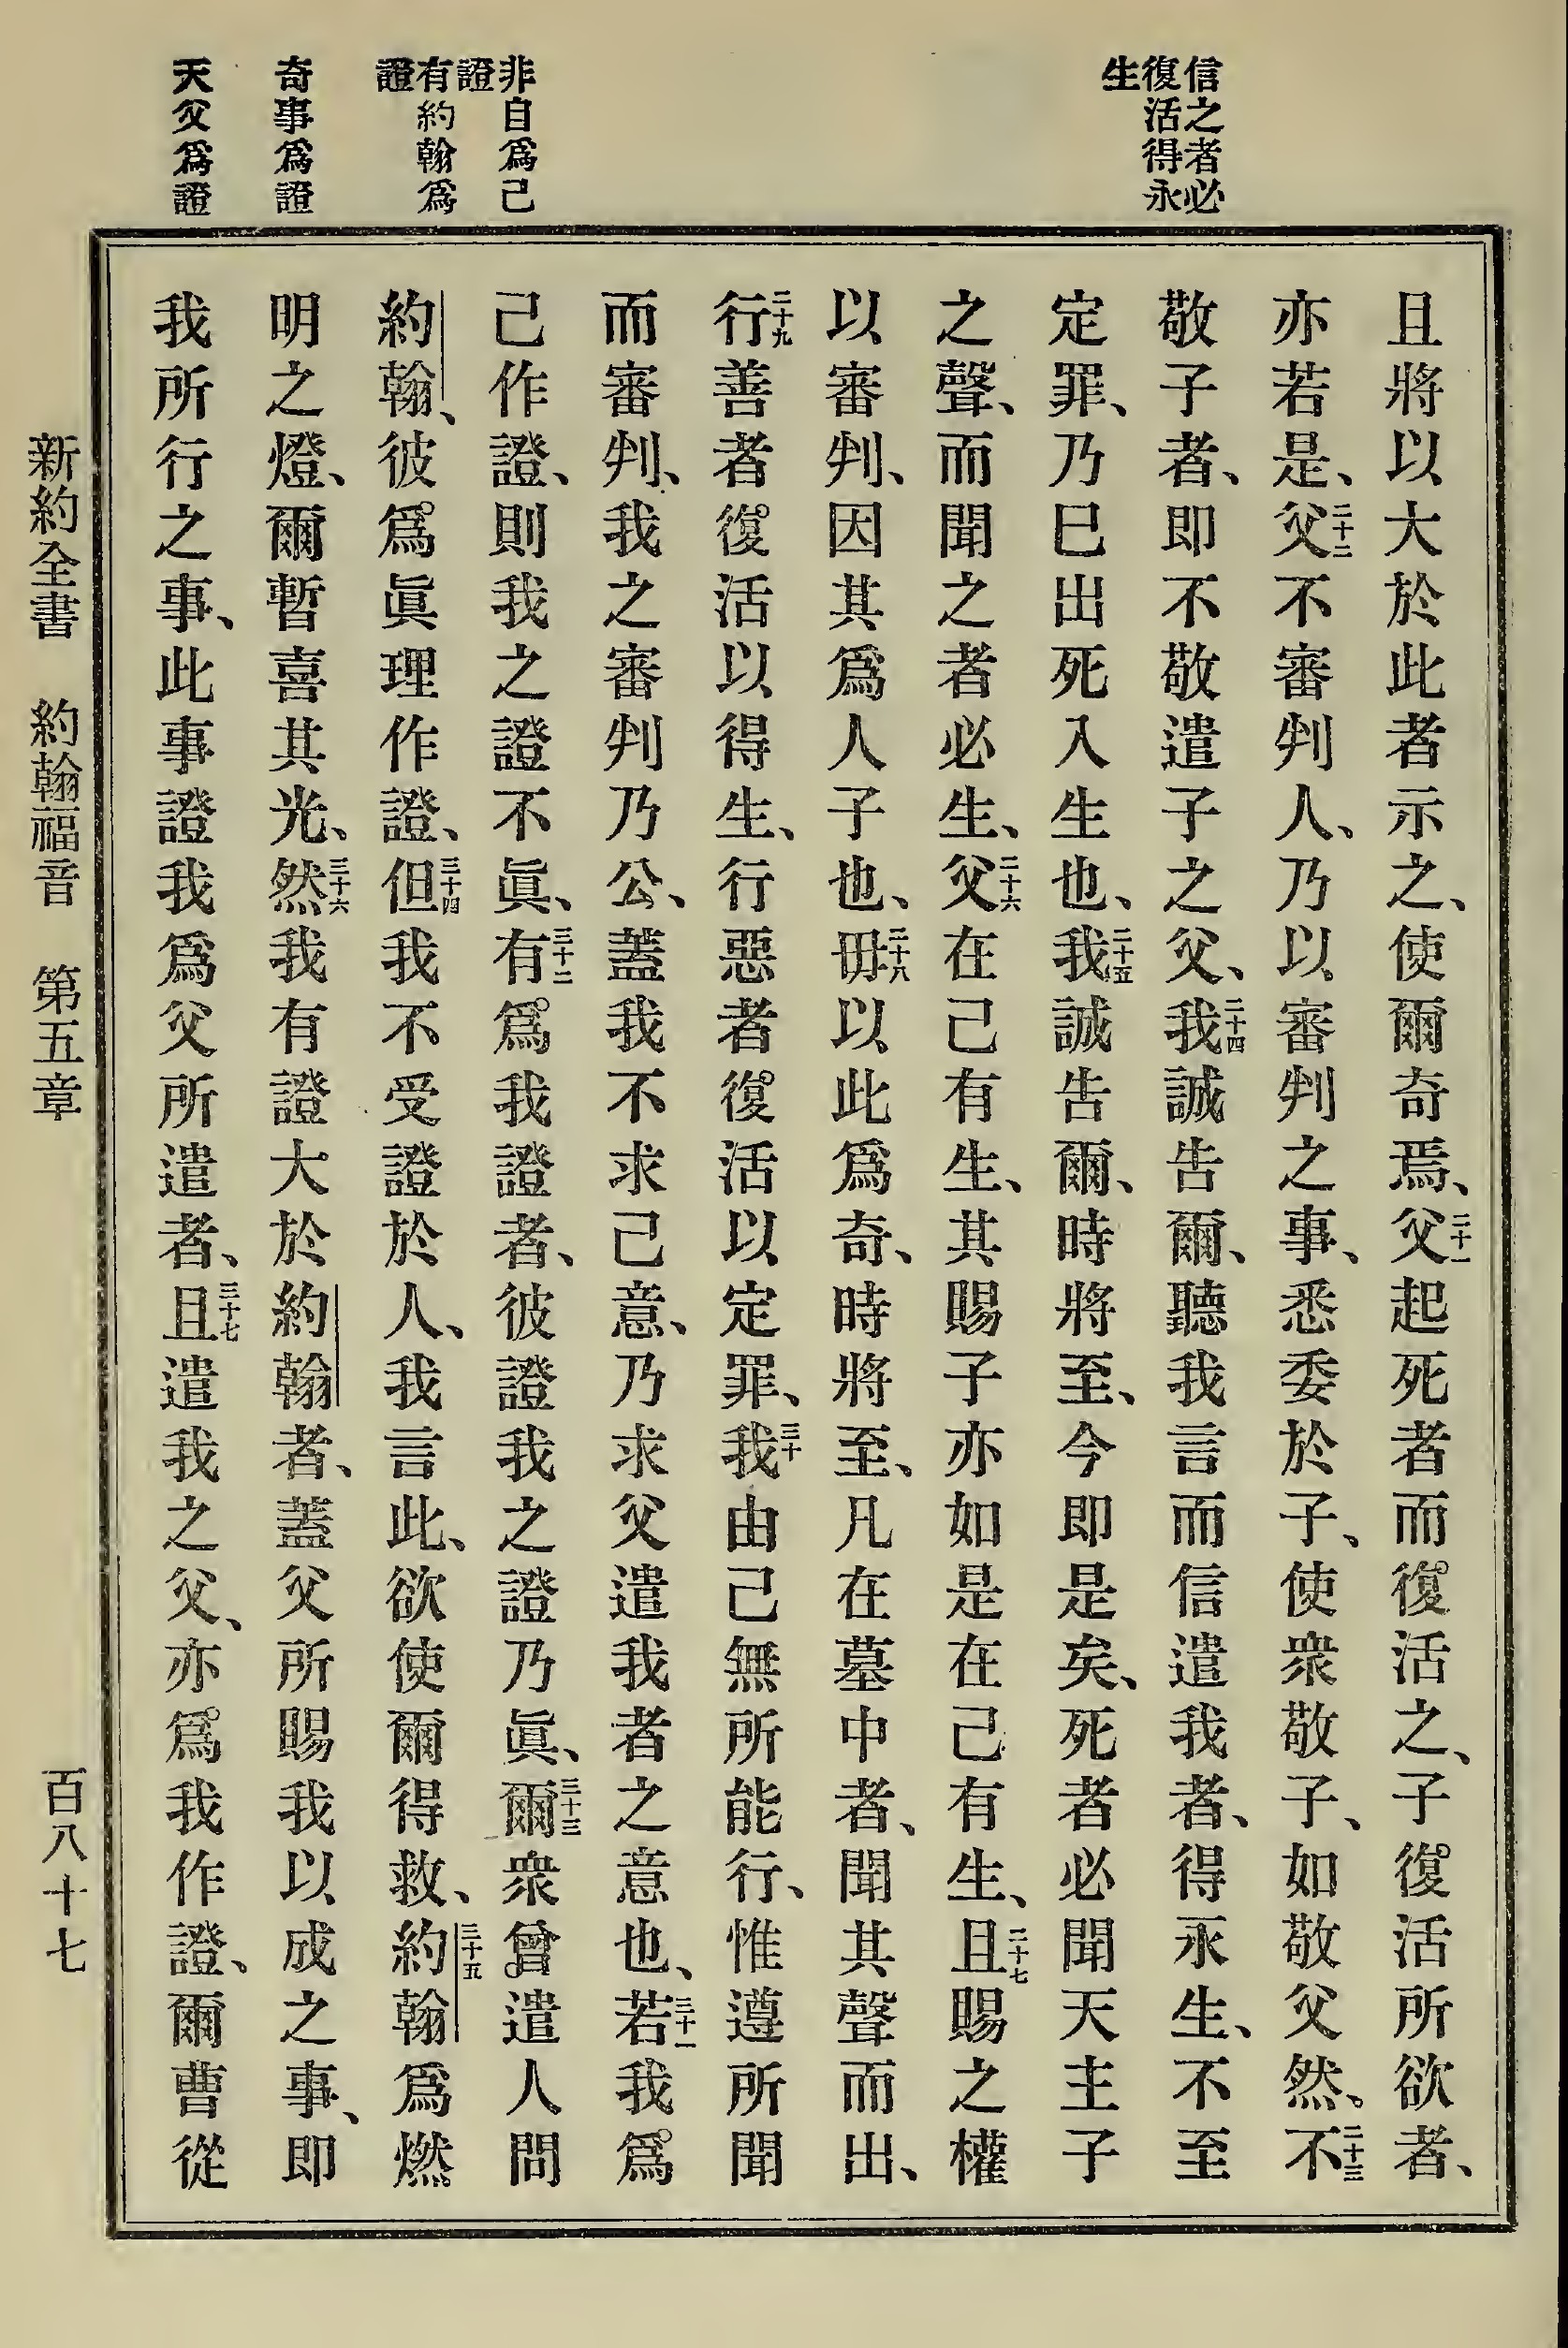 信之者必
復活得永
生
非自爲己
證
有約翰爲
證
奇事爲證
天父爲證
且將以大於此者示之、使爾奇焉、二十一父起死者而復活之、子復活所欲者、
亦若是、二十二父不審判人、乃以審判之事、悉委於子、使衆敬子、如敬父然、二十三不
敬子者、即不敬遣子之父、二十四我誠告爾、聽我言而信遣我者、得永生、不至
定罪、乃已出死入生也、二十五我誠告爾、時將至、今即是矣、死者必聞天主子
之聲、而聞之者必生、二十六父在己有生、其賜子亦如是在己有生、二十七且賜之權
以審判、因其爲人子也、二十八毋以此爲奇、時將至、凡在墓中者、聞其聲而出、
二十九行善者復活以得生、行惡者復活以定罪、三十我由己無所能行、惟遵所聞
而審判、我之審判乃公、蓋我不求己意、乃求父遣我者之意也、三十一若我爲
己作證、則我之證不眞、三十二有爲我證者、彼證我之證乃眞、三十三爾衆曾遣人問
約翰、彼爲眞理作證、三十四但我不受證於人、我言此、欲使爾得救、三十五約翰爲燃
明之燈、爾暫喜其光、三十六然我有證大於約翰者、蓋父所賜我以成之事、即
我所行之事、此事證我爲父所遣者、三十七且遣我之父、亦爲我作證、爾曹從
新約全書 約翰福音 第五章 百八十七